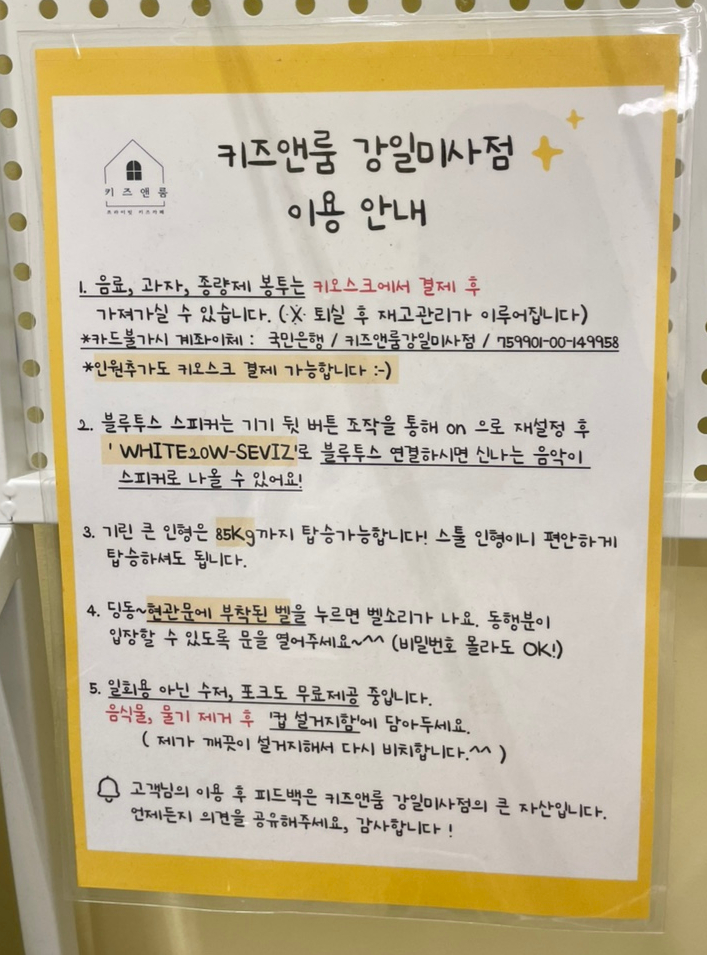 키즈앤룸 강일미사점
이용 안내
키즈앤룸
프라이빗 키즈카페
1. 음료, 과자, 종량제 봉투는 키오스크에서 결제 후
가져가실 수 있습니다. (※ 퇴실 후 재고관리가 이루어집니다)
*카드불가시 계좌이체 : 국민은행 / 키즈앤룸강일미사점 / 759901-00-149958
*인원추가도 키오스크 결제 가능합니다 :-)
2. 블루투스 스피커는 기기 뒷 버튼 조작을 통해 on 으로 재설정 후
' WHITE20W-SEVIZ'로 블루투스 연결하시면 신나는 음악이
스피커로 나올 수 있어요!
3. 기린 큰 인형은 85Kg까지 탑승가능합니다! 스툴 인형이니 편안하게
탑승하셔도 됩니다.
4. 딩동~현관문에 부착된 벨을 누르면 벨소리가 나요. 동행분이
입장할 수 있도록 문을 열어주세요~^^ (비밀번호 몰라도 OK!)
5. 일회용 아닌 수저, 포크도 무료제공 중입니다.
음식물, 물기 제거 후 '컵 설거지함'에 담아두세요.
( 제가 깨끗이 설거지해서 다시 비치합니다.^^ )
고객님의 이용 후 피드백은 키즈앤룸 강일미사점의 큰 자산입니다.
언제든지 의견을 공유해주세요, 감사합니다 !